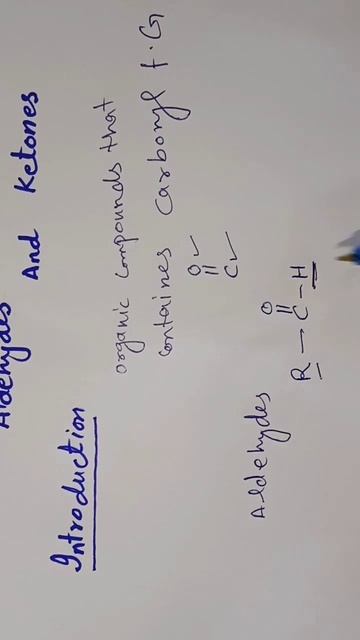 Aldehydes And Ketones
Introduction
organic compounds that
containes carbonyl f.G
O
||
C
Aldehydes
O
||
R — C — H